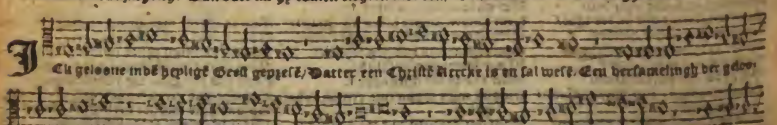 Ick geloove indē heyligē Geest gepresē/Datter een Christē Kercke is en sal wesē. Een versamelingh der geloo-